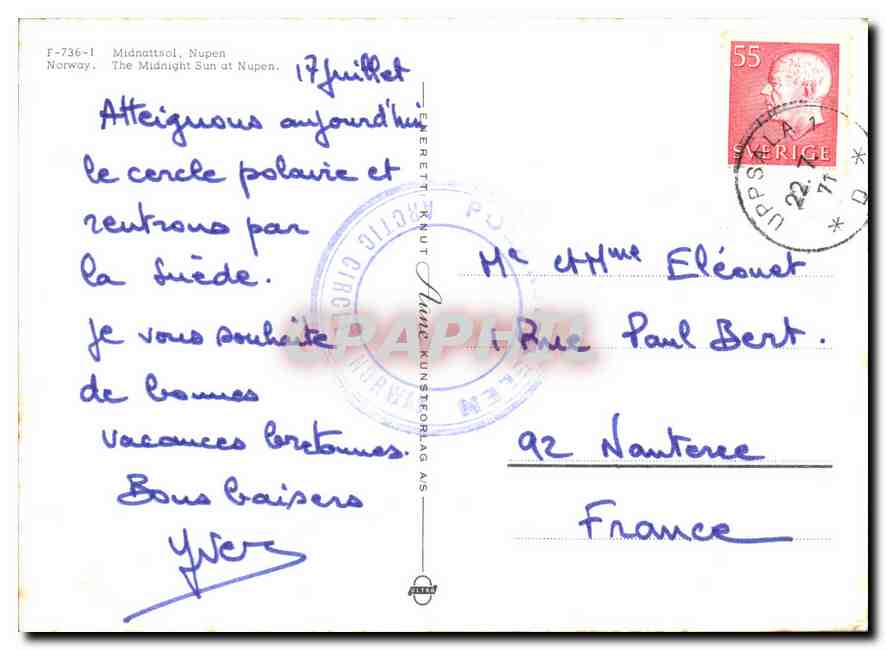 F-736-1 Midnattsol, Nupen
Norway. The Midnight Sun at Nupen.
17 Juillet
Atteignons aujourd'hui
le cercle polaire et
rentrons par
la Suède.
je vous souhaite
de bonnes
vacances bretonnes.
Bons baisers
Yves
ENERETT: KNUT Aune KUNSTFORLAG A/S
ULTRA
ARCTIC CIRCLE NORWAY
CPAPHIL
55
SVERIGE
UPPSALA 1
22.7.
71
* D *
Mr et Mme Eléouet
1 Rue Paul Bert.
92 Nanterre
France